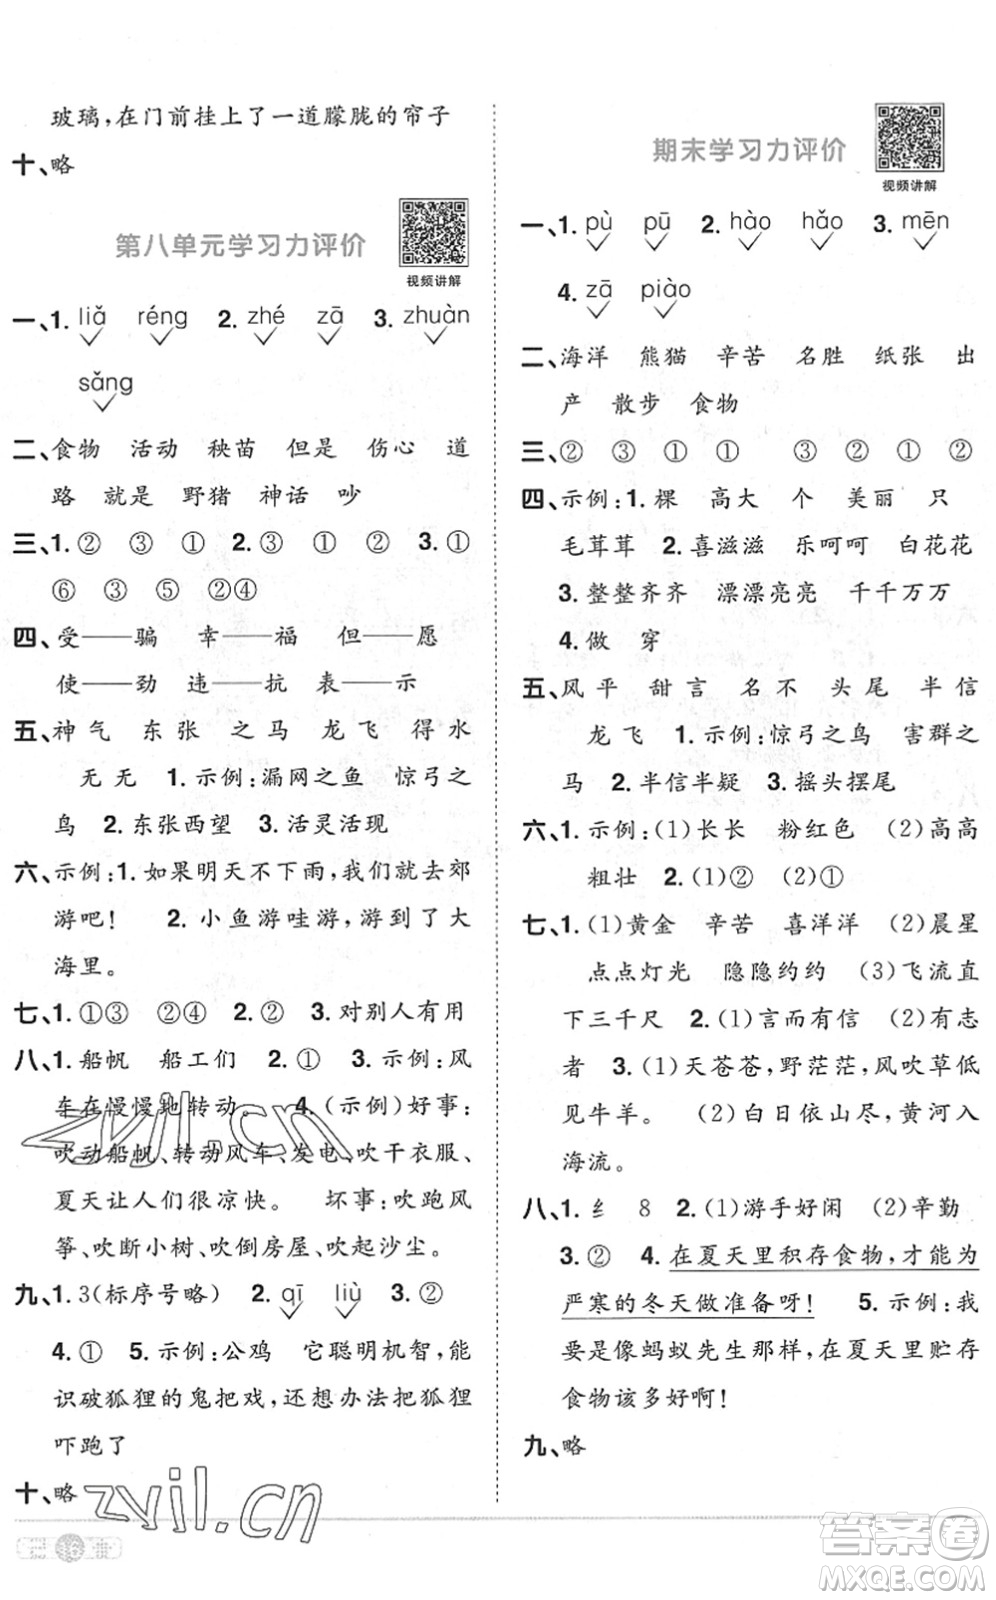 玻璃,在门前挂上了一道朦胧的帘子
十、略
第八单元学习力评价
视频讲解
一、1. liǎ réng 2. zhé zā 3. zhuàn
sǎng
二、食物 活动 秧苗 但是 伤心 道
路 就是 野猪 神话 吵
三、1. ② ③ ① 2. ③ ① ② 3. ①
⑥ ③ ⑤ ②④
四、受——骗 幸——福 但——愿
使——劲 违——抗 表——示
五、神 气 东 张 之 马 龙 飞 得 水
无 无 1. 示例:漏网之鱼 惊弓之
鸟 2. 东张西望 3. 活灵活现
六、示例:1. 如果明天不下雨,我们就去郊
游吧! 2. 小鱼游哇游,游到了大
海里。
七、1. ①③ ②④ 2. ② 3. 对别人有用
八、1. 船帆 船工们 2. ① 3. 示例:风
车在慢慢地转动。 4. (示例)好事:
吹动船帆、转动风车、发电、吹干衣服、
夏天让人们很凉快。 坏事:吹跑风
筝、吹断小树、吹倒房屋、吹起沙尘。
九、1. 3(标序号略) 2. qī liù 3. ②
4. ① 5. 示例:公鸡 它聪明机智,能
识破狐狸的鬼把戏,还想办法把狐狸
吓跑了
十、略
期末学习力评价
视频讲解
一、1. pù pū 2. hào hǎo 3. mēn
4. zā piào
二、海洋 熊猫 辛苦 名胜 纸张 出
产 散步 食物
三、② ③ ① ① ③ ② ① ②
四、示例:1. 棵 高大 个 美丽 只
毛茸茸 2. 喜滋滋 乐呵呵 白花花
3. 整整齐齐 漂漂亮亮 千千万万
4. 做 穿
五、风 平 甜 言 名 不 头 尾 半 信
龙 飞 1. 示例:惊弓之鸟 害群之
马 2. 半信半疑 3. 摇头摆尾
六、1. 示例:(1)长长 粉红色 (2)高高
粗壮 2. (1)② (2)①
七、1. (1)黄金 辛苦 喜洋洋 (2)晨星
点点灯光 隐隐约约 (3)飞流直
下三千尺 2. (1)言而有信 (2)有志
者 3. (1)天苍苍,野茫茫,风吹草低
见牛羊。 (2)白日依山尽,黄河入
海流。
八、1. 纟 8 2. (1)游手好闲 (2)辛勤
3. ② 4. 在夏天里积存食物,才能为
严寒的冬天做准备呀! 5. 示例:我
要是像蚂蚁先生那样,在夏天里贮存
食物该多好啊!
九、略
zyjl.cn
zyjl.cn
答案卷
MXQE.COM